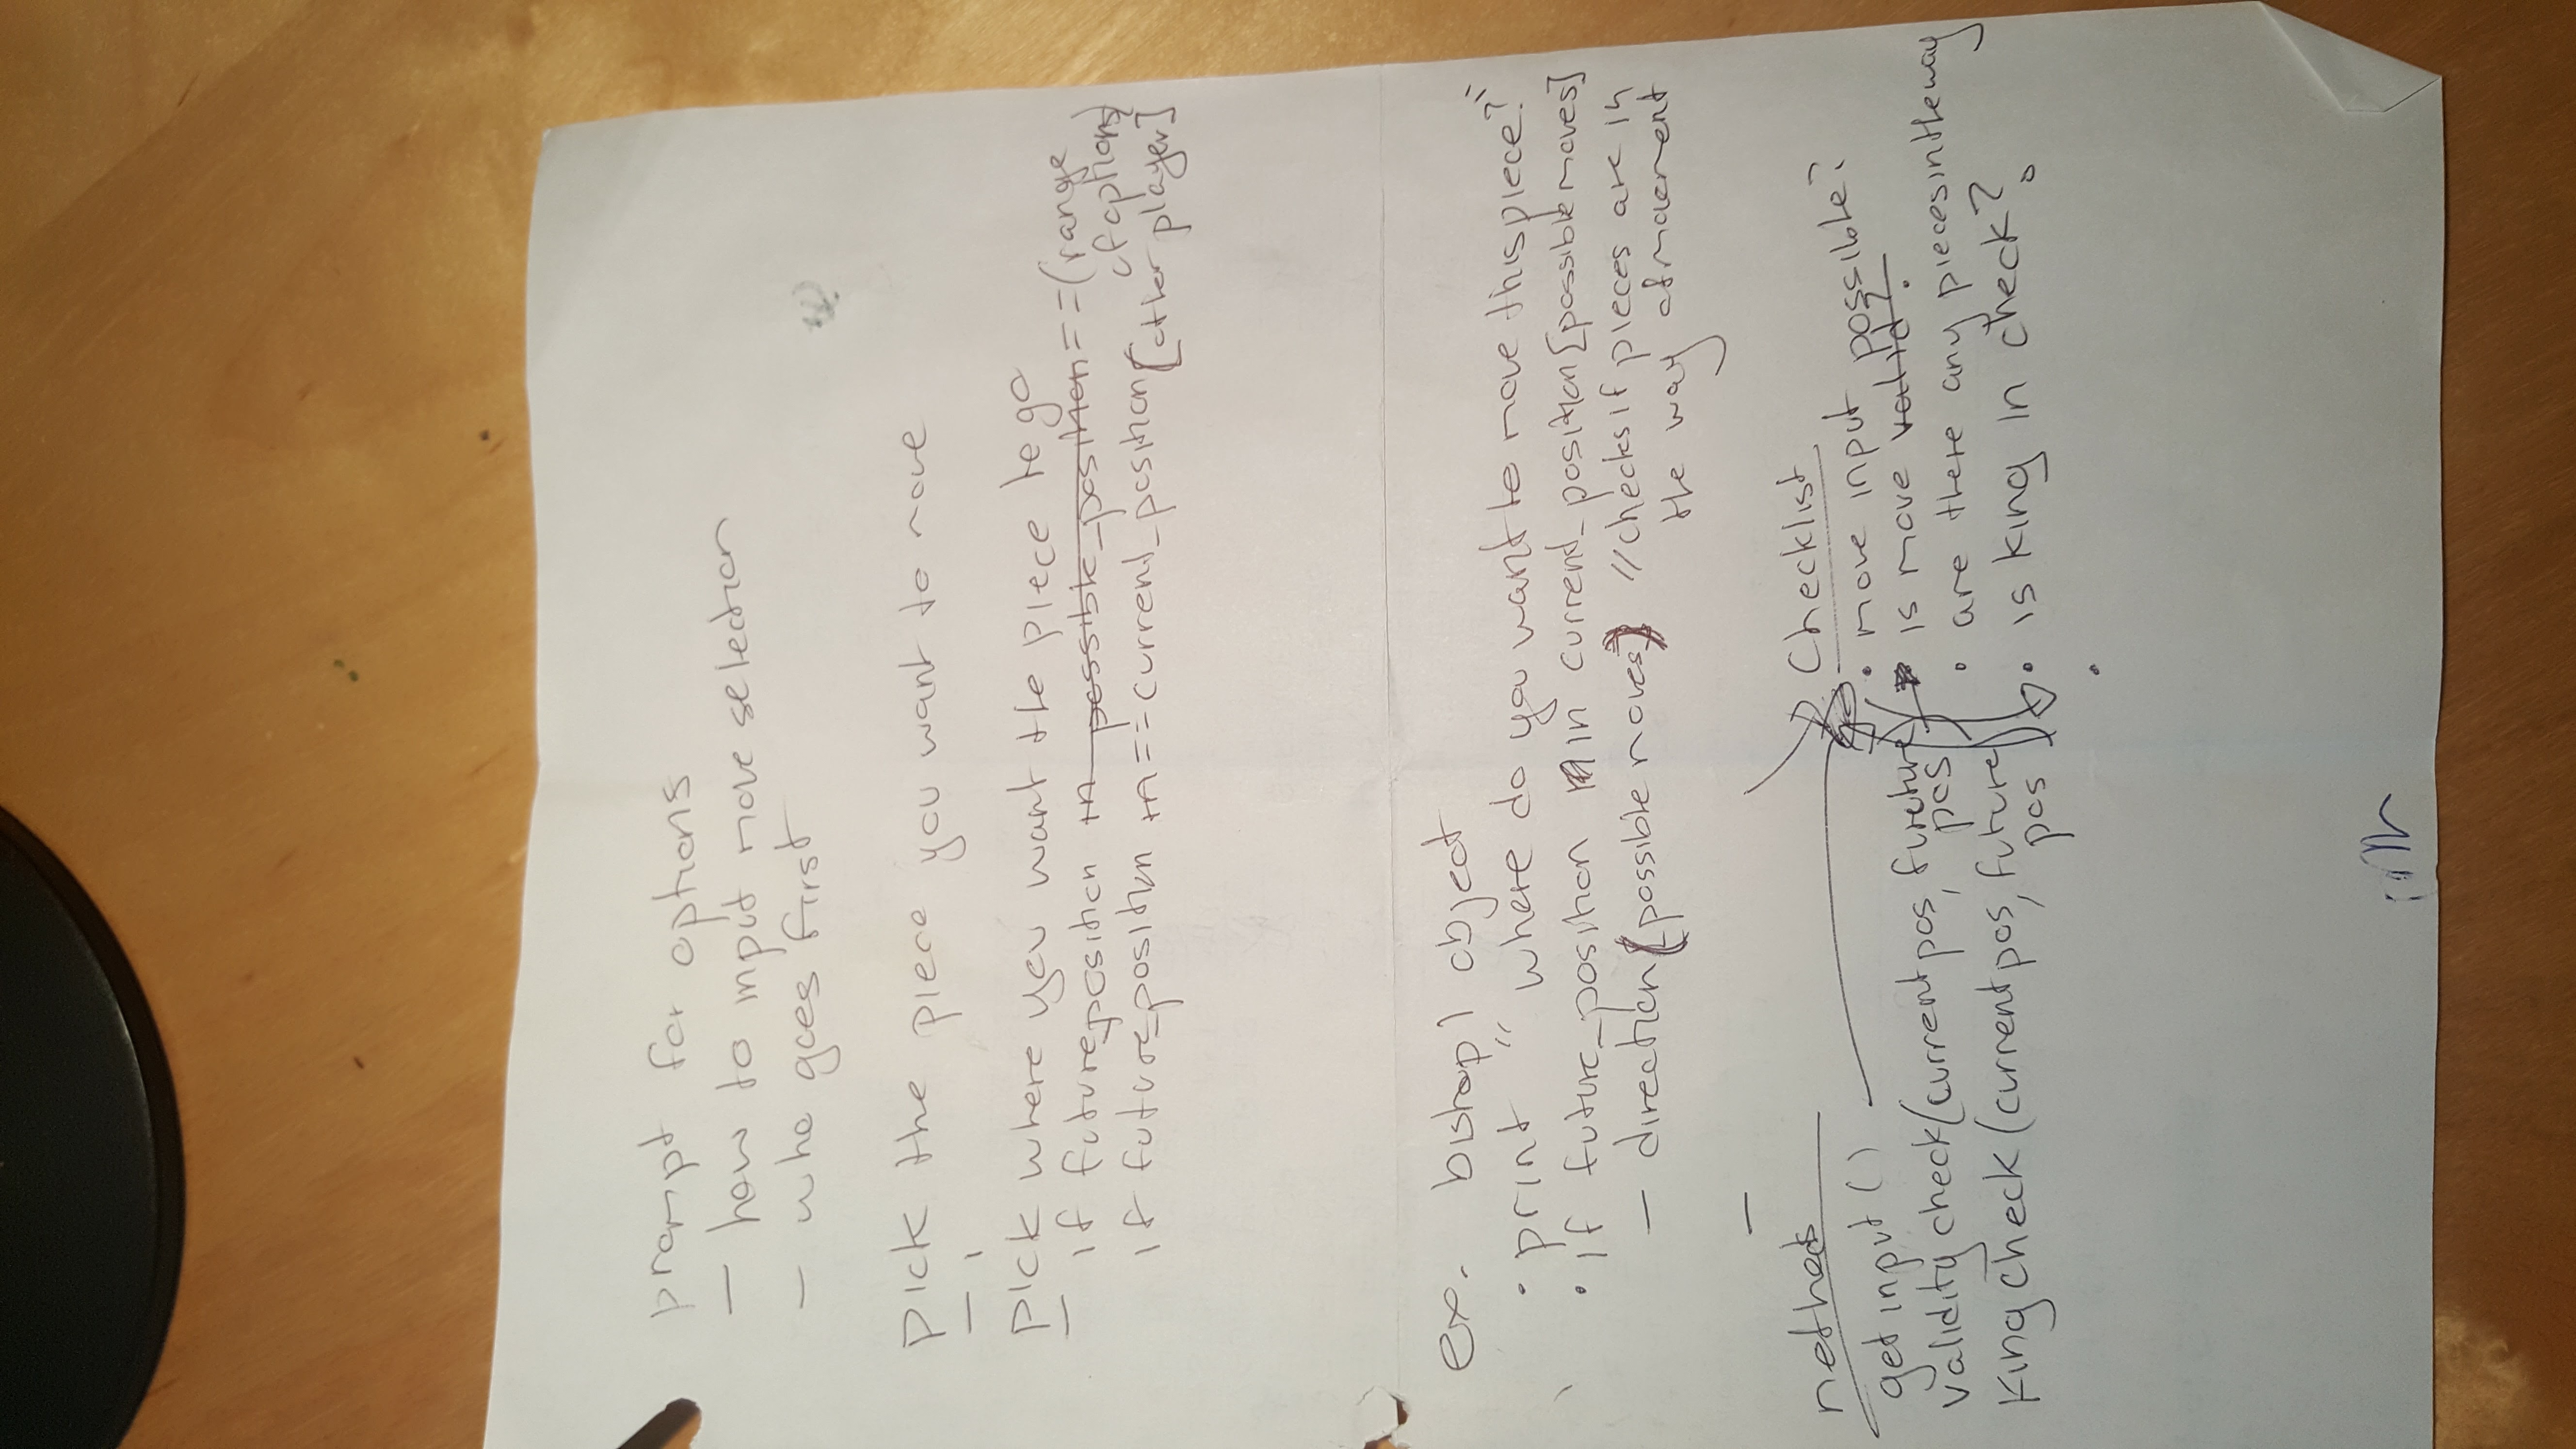 prompt for options
- how to input move selection
- who goes first
pick the piece you want to move
-
pick where you want the piece to go
- if future_position in possible_position == (range of options)
if future_position in == current_position [other player]
ex. bishop1 object
• print "where do you want to move this piece?"
• if future_position in current_position [possible moves]
- direction (possible moves) // checks if pieces are in
the way of movement
-
methods
get input ()
validity check (current pos, fureture pos)
King check (current pos, future pos)
Checklist
• move input possible?
• is move valid?
• are there any pieces in the way
• is king in check?
•